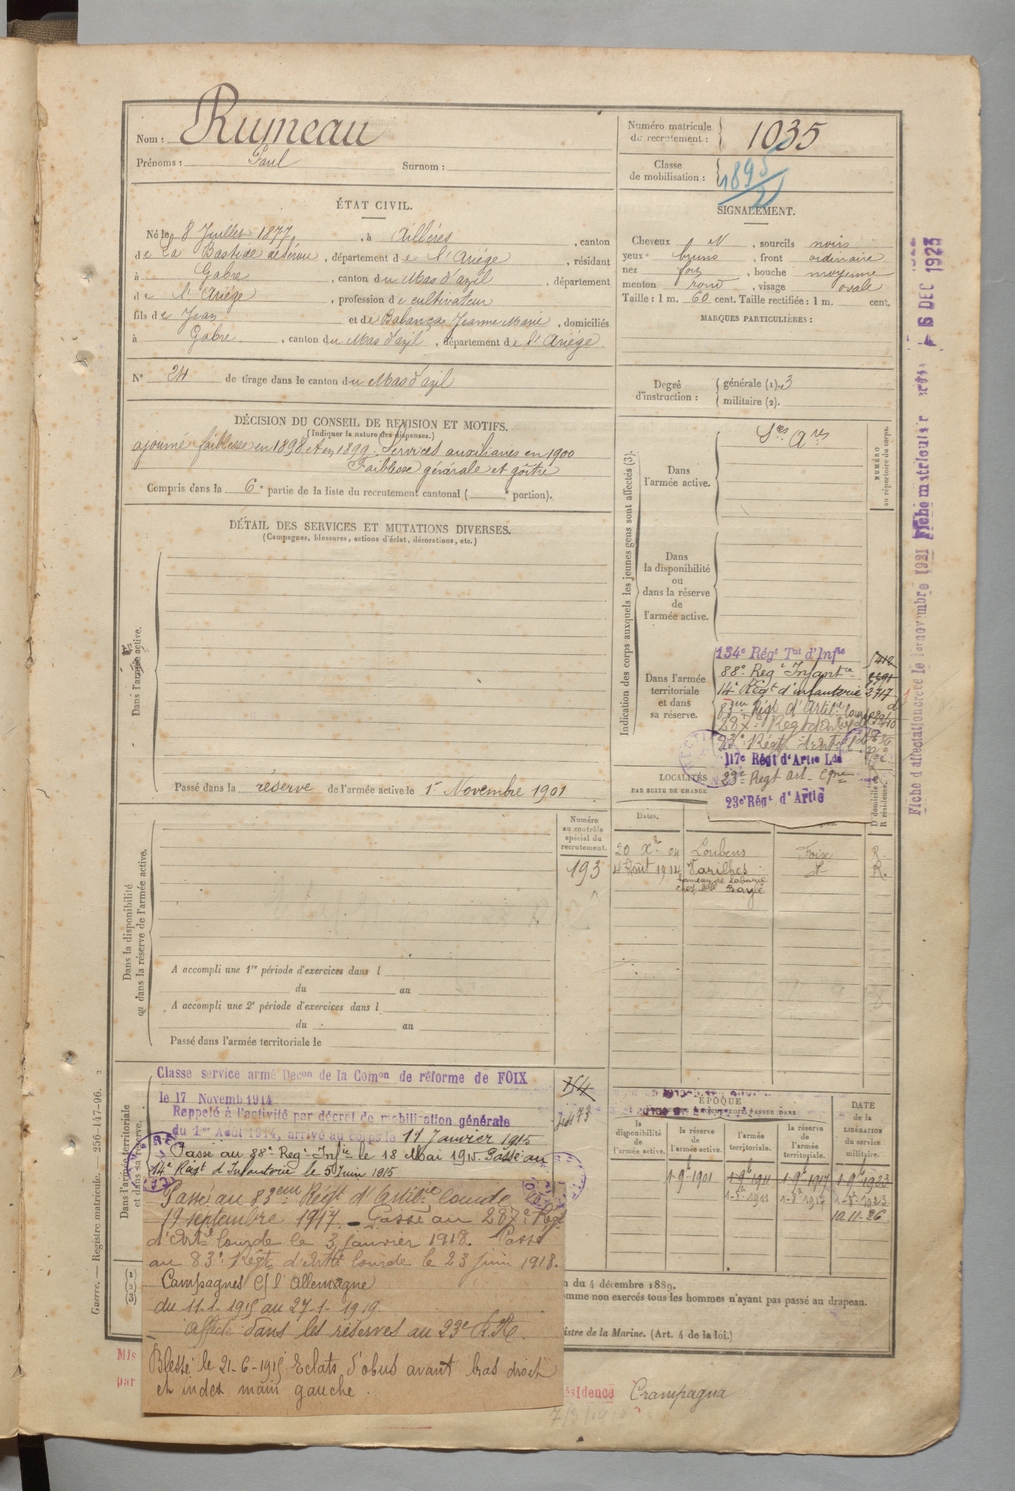 Nom : Rumeau
Prénoms : Paul Surnom :
Numéro matricule du recrutement : 1035
Classe de mobilisation : 1895
ÉTAT CIVIL.
Né le 8 Juillet 1877, à Aillères, canton
de La Bastide de Sérou, département de l'Ariège, résidant
à Gabre, canton du Mas d'azil, département
de l'Ariège, profession de cultivateur
fils de Jean et de Balança Jeanne Marie, domiciliés
à Gabre, canton du Mas d'azil, département de l'Ariège
N° 24 de tirage dans le canton du Mas d'azil
SIGNALEMENT.
Cheveux N, sourcils noirs
yeux bruns, front ordinaire
nez fort, bouche moyenne
menton rond, visage ovale
Taille : 1 m. 60 cent. Taille rectifiée : 1 m. cent.
MARQUES PARTICULIÈRES :
Degré d'instruction : générale (1). 3
militaire (2).
DÉCISION DU CONSEIL DE REVISION ET MOTIFS.
(Indiquer la nature des dispenses.)
ajourné faiblesse en 1898 et en 1899. Services auxiliaires en 1900
Faiblesse générale et goitre
Compris dans la 6e partie de la liste du recrutement cantonal ( portion).
DÉTAIL DES SERVICES ET MUTATIONS DIVERSES.
(Campagnes, blessures, actions d'éclat, décorations, etc.)
Dans l'armée active.
Passé dans la réserve de l'armée active le 1er Novembre 1901
Indication des corps auxquels les jeunes gens sont affectés (3).
NUMÉRO au répertoire du corps.
Dans l'armée active.
Sces Ares
Dans la disponibilité ou dans la réserve de l'armée active.
Dans l'armée territoriale et dans sa réserve.
134e Régt Tial d'Infie
88e Regt Infantrie
14e Régt d'infanterie 2717
83eme Régt d'Artilie lourde
287e Regt
117e Régt d'Artie Lde
23e Regt art. Cgne
23e Régt d'Artie
LOCALITÉS
PAR SUITE DE CHANGE
Dates.
D domicile
R résidence.
20 Xbre 04 Loubens Foix R.
4 Août 1912 Varilhes R.
Dans la disponibilité ou dans la réserve de l'armée active.
Numéro au contrôle spécial du recrutement.
193
A accompli une 1re période d'exercices dans l
du au
A accompli une 2e période d'exercices dans l
du au
Passé dans l'armée territoriale le
Dans l'armée territoriale et dans sa réserve.
Classe service armé Décon de la Comon de réforme de FOIX
le 17 Novemb 1914
Rappelé à l'activité par décret de mobilisation générale
du 1er Août 1914, arrivé au corps le 11 Janvier 1915
Passé au 88e Regt Infie le 18 Mai 1915. Passé au
14e Régt d'Infanterie le 5 Juin 1915
Passé au 83eme Régt d'Artilie lourde
19 septembre 1917. Passé au 287e Régt
d'Artie lourde le 3 janvier 1918. Passé
au 83e Régt d'Artie lourde le 23 juin 1918.
Campagnes C/ l'Allemagne
du 11-1-1915 au 27-1-1919.
Affecté dans les réserves au 23e R.A.
Blessé le 21-6-1915 Eclats d'obus avant bras droit
et index main gauche.
ÉPOQUE
la disponibilité de l'armée active.
la réserve de l'armée active.
l'armée territoriale.
la réserve de l'armée territoriale.
DATE de la LIBÉRATION du service militaire.
1-9-1901 1-9-1911 1-9-1917 1-9-1923
10-11-26
du 4 décembre 1889.
omme non exercés tous les hommes n'ayant pas passé au drapeau.
istre de la Marine. (Art. 4 de la loi.)
résidence Crampagna
Mis
par
Guerre. — Registre matricule. 256-147-96.
Fiche d'affectation créée le 1er novembre 1921
Fiche matriculaire
6 DEC 1923